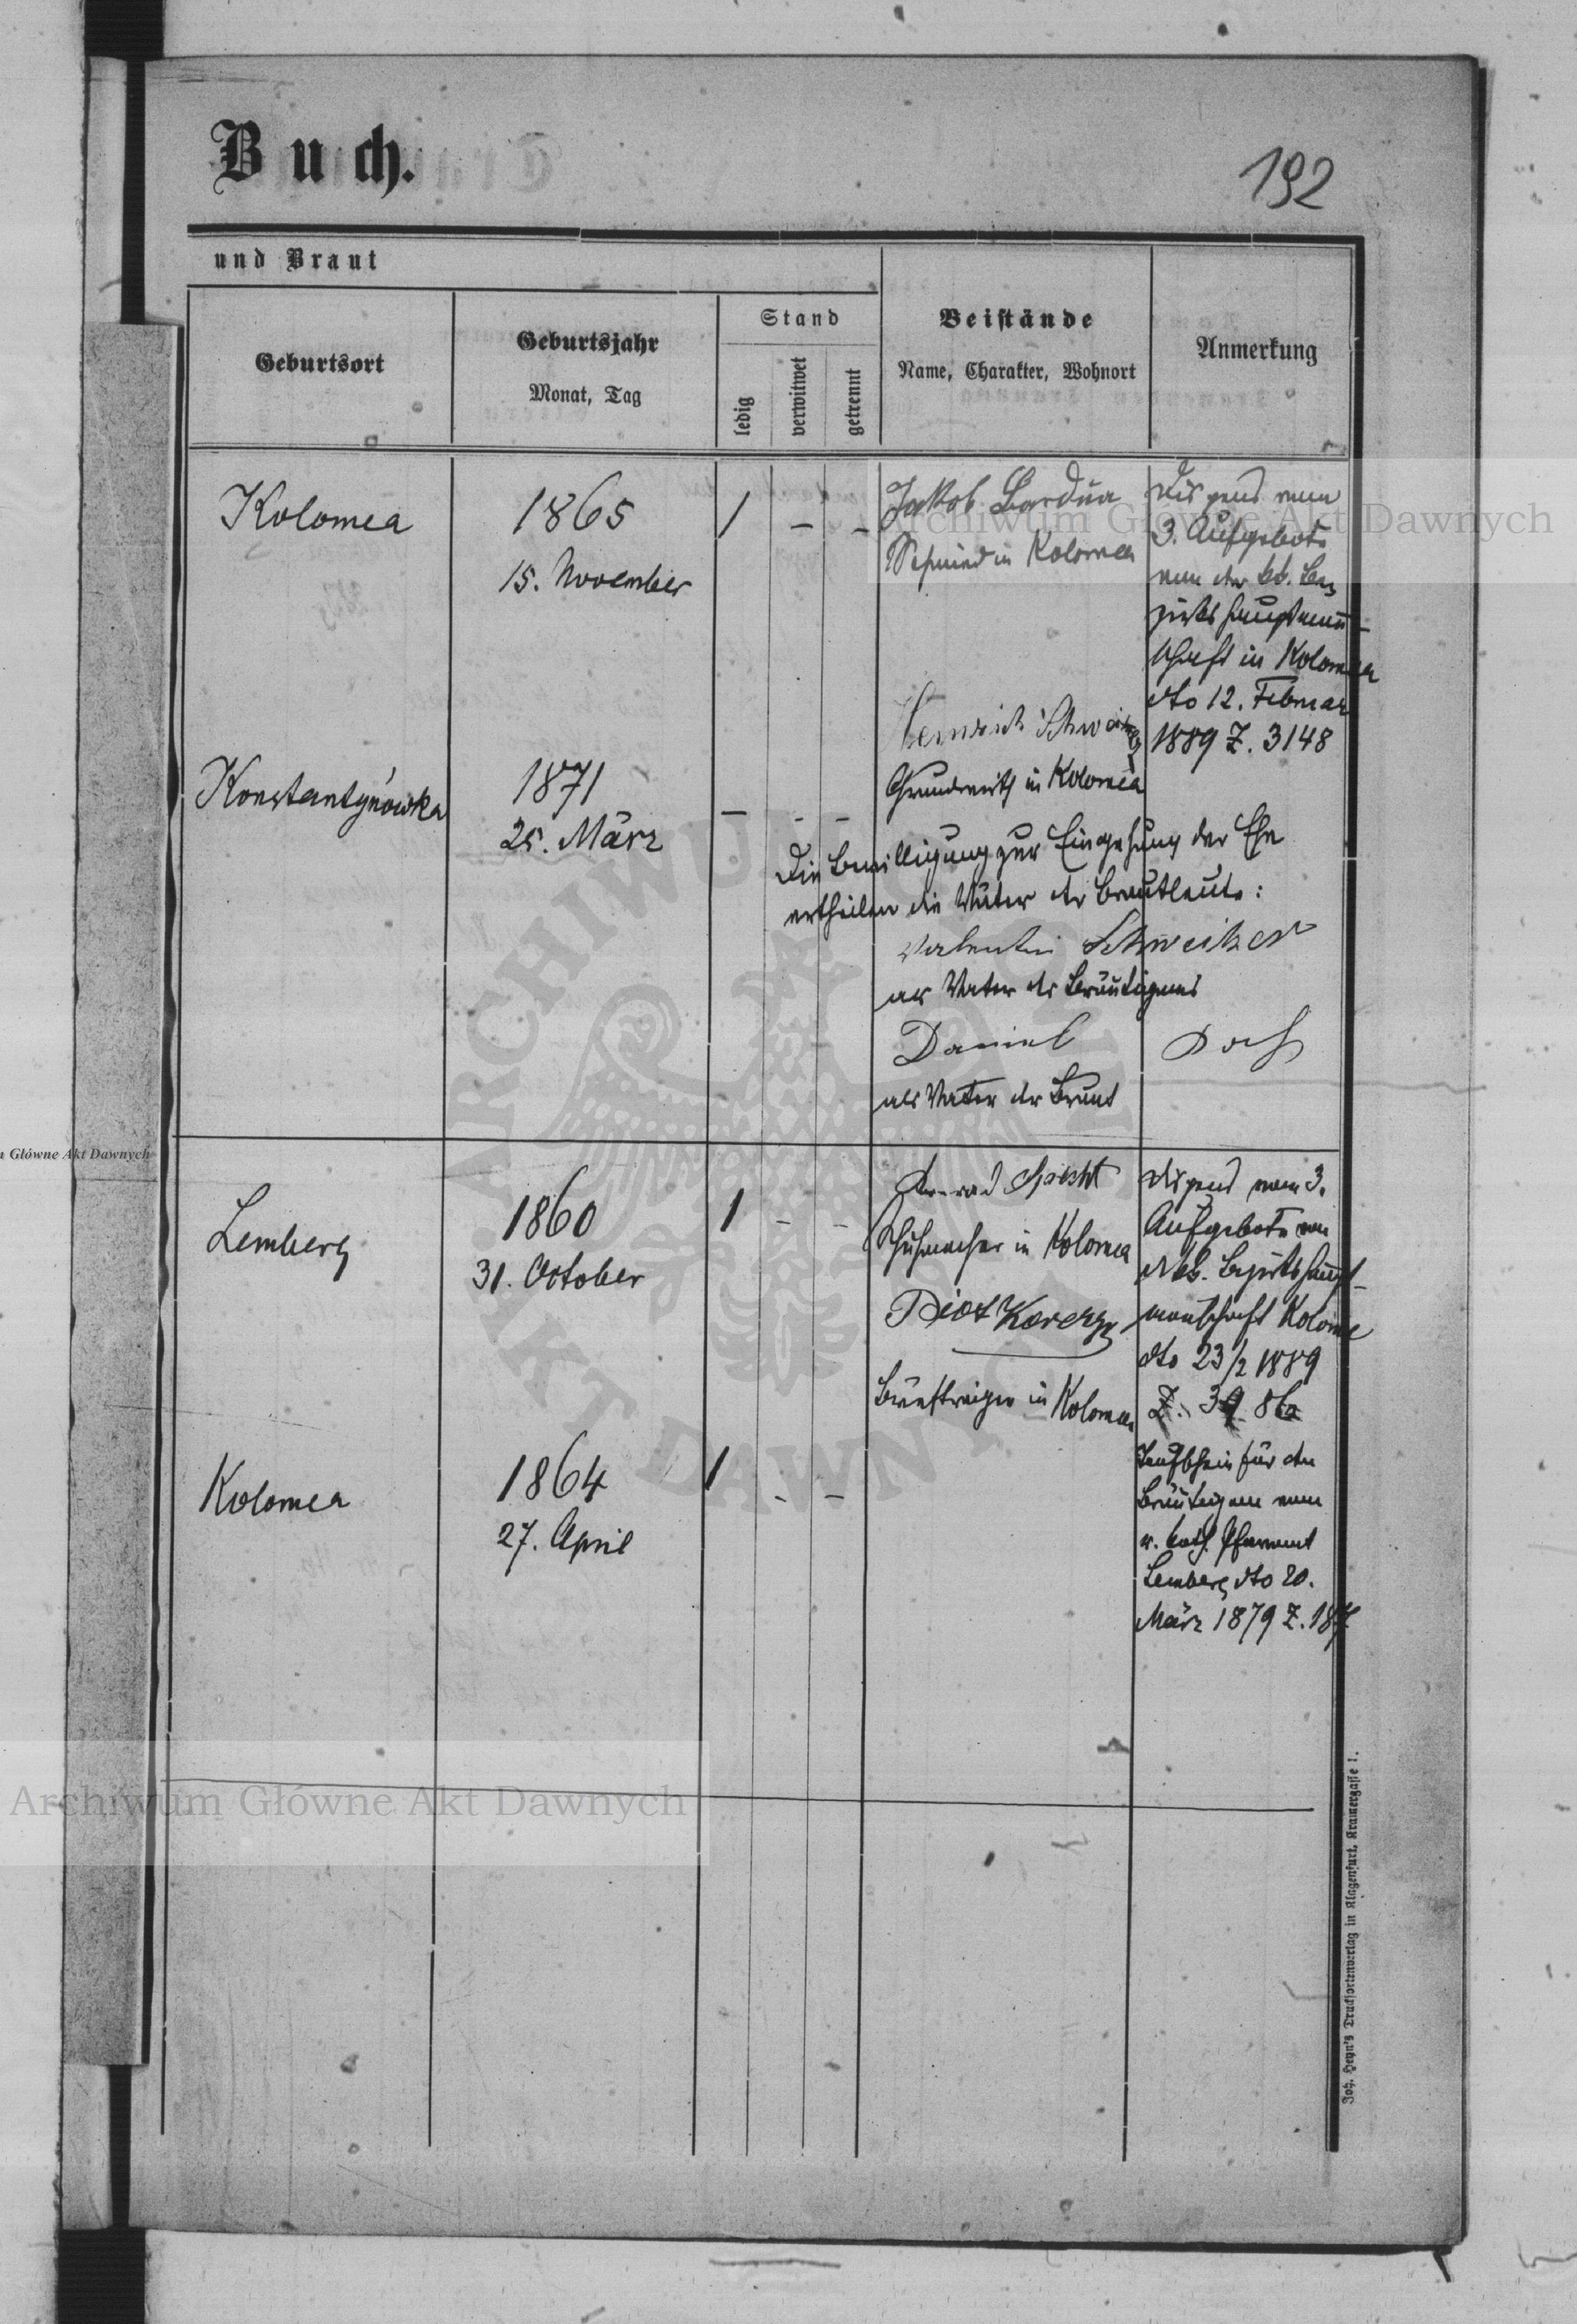 Buch.
192
und Braut
Geburtsort
Geburtsjahr
Monat, Tag
Stand
ledig
verwitwet
getrennt
Beistände
Name, Charakter, Wohnort
Anmerkung
Kolomea
1865
15. November
1 - -
Jakob Bardua
Schmied in Kolomea
Dispens vom
3. Aufgebote
von der kk. Be-
zirkshauptmann-
schaft in Kolomea
dto 12. Februar
1889 Z. 3148
Heinrich Schweitzer
Grundwirth in Kolomea
Konstantynówka
1871
25. März
- - -
Die Bewilligung zur Eingehung der Ehe
ertheilen die Väter der Brautleute:
Valentin Schweitzer
als Vater des Bräutigams
Daniel
als Vater der Braut
Lemberg
1860
31. October
1 - -
Konrad Specht
Schuhmacher in Kolomea
Piotr
in Kolomea
Dispens vom 3.
Aufgebote von
d. kk. Bezirkshaupt-
mannschaft Kolomea
dto 23/2 1889
Z. 39 86
Taufschein für den
Bräutigam vom
r. kath. Pfarramt
Lemberg dto 20.
März 1879 Z.
Kolomea
1864
27. April
1 - -
Joh. Heyn's Drucksortenverlag in Klagenfurt, Kramergasse 1.
Archiwum Główne Akt Dawnych
Główne Akt Dawnych
Archiwum Główne Akt Dawnych
ARCHIWUM GŁÓWNE
AKT DAWNYCH